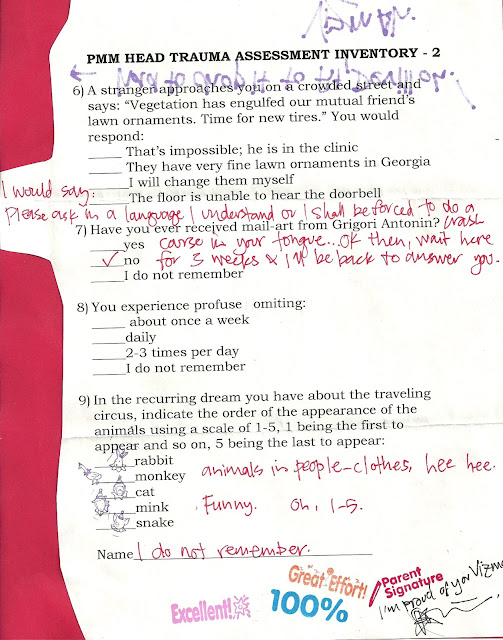 PMM HEAD TRAUMA ASSESSMENT INVENTORY - 2
6) A stranger approaches you on a crowded street and
says: “Vegetation has engulfed our mutual friend’s
lawn ornaments. Time for new tires.” You would
respond:
_____ That’s impossible; he is in the clinic
_____ They have very fine lawn ornaments in Georgia
_____ I will change them myself
I would say: _____ The floor is unable to hear the doorbell
Please ask in a language I understand or I shall be forced to do a
7) Have you ever received mail-art from Grigori Antonin? crash
_____yes course in your tongue...ok then, wait here
__✓__no for 3 weeks & i'll be back to answer you.
_____I do not remember
8) You experience profuse omiting:
_____ about once a week
_____daily
_____2-3 times per day
_____I do not remember
9) In the recurring dream you have about the traveling
circus, indicate the order of the appearance of the
animals using a scale of 1-5, 1 being the first to
appear and so on, 5 being the last to appear:
_____rabbit
_____monkey animals in people-clothes, hee hee.
_____cat
_____mink Funny. Oh, 1-5.
_____snake
Name I do not remember.
Excellent!
Great Effort!
100%
Parent
Signature
I'm proud of you Vizma